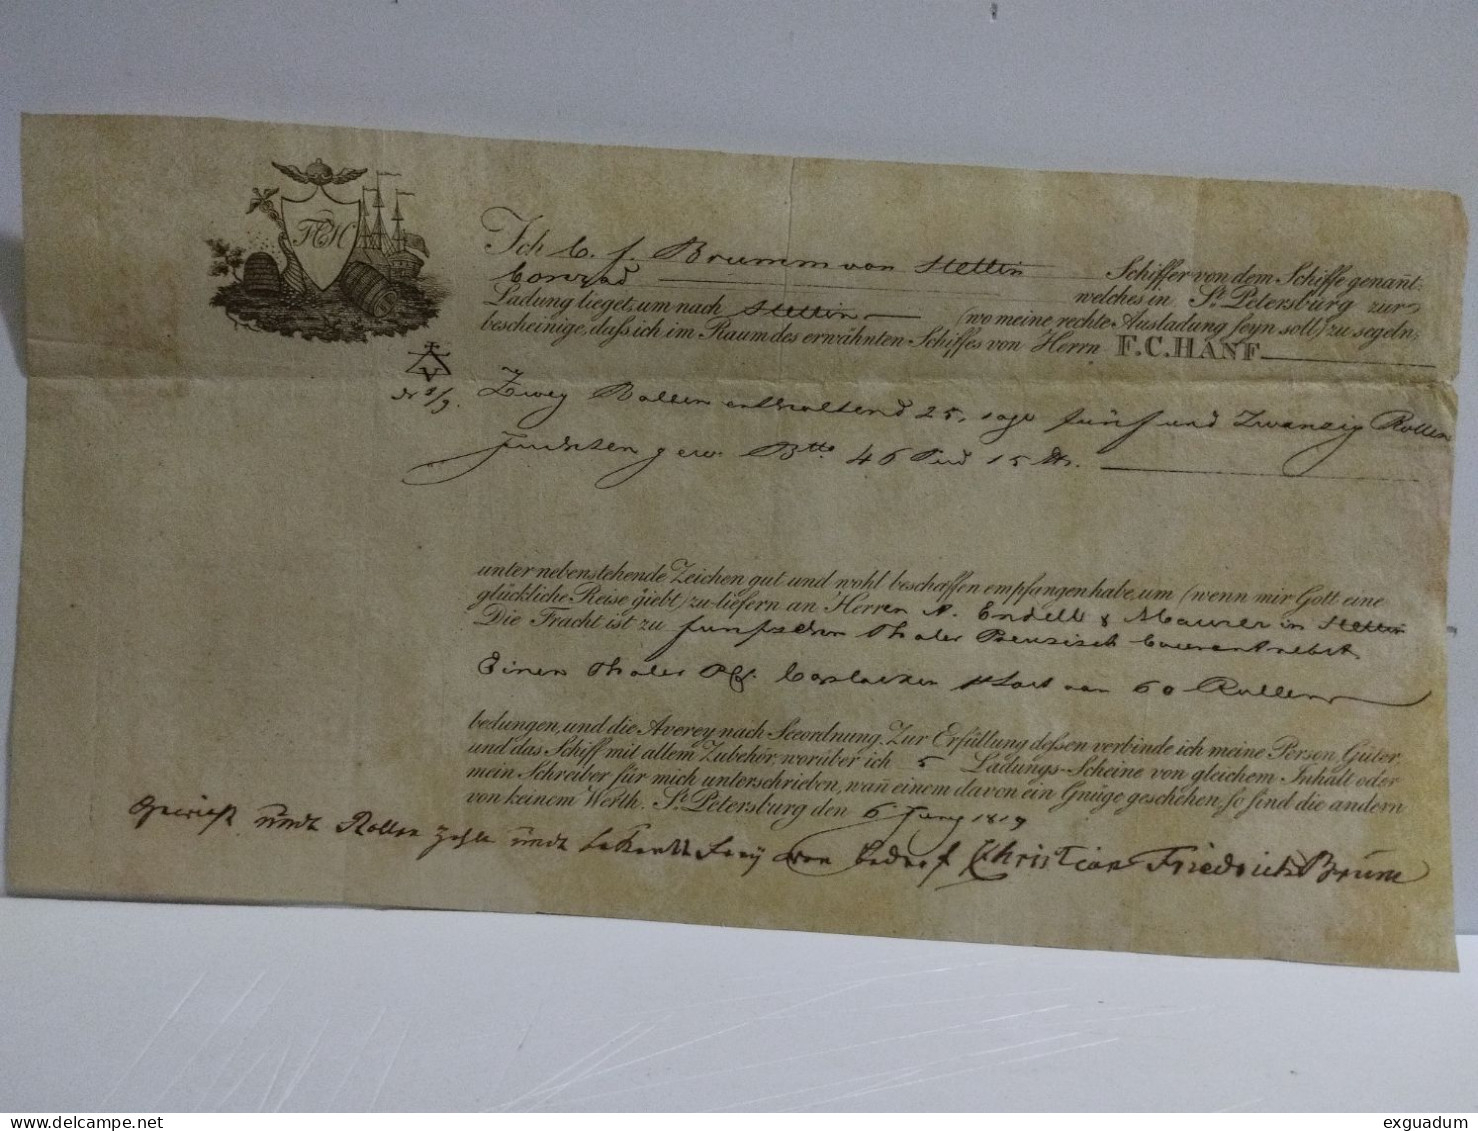 FCH
Ich C. F. Brumm von Stettin Schiffer von dem Schiffe genant:
Conrad welches in St. Petersburg zur
Ladung lieget, um nach Stettin (wo meine rechte Ausladung seyn soll) zu segeln;
bescheinige, daſs ich im Raum des erwähnten Schiffes von Herrn F. C. HANF
V
Nr 2/3.
Zwey Rollen enthaltend 25, sage fünf und Zwanzig Rollen
Juchten gew. Btto 46 Pud 15 lb.
unter nebenstehende Zeichen gut und wohl beschaffen empfangen habe, um (wenn mir Gott eine
glückliche Reise giebt) zu liefern an Herren A. Endell & Maurer in Stettin
Die Fracht ist zu funfzehn Thaler Preusisch Courant nebst
Einen Thaler Caplacken Last von 60 Rollen
bedungen, und die Averey nach Seeordnung. Zur Erfüllung deſsen verbinde ich meine Person, Güter
und das Schiff mit allem Zubehör, worüber ich 5 Ladungs-Scheine von gleichem Inhalt oder
mein Schreiber für mich unterschrieben, wañ einem davon ein Gnüge geschehen, so sind die andern
von keinem Werth. St. Petersburg den 6 Juny 1819
Rollen Christian Friedrich Brum
exguadum